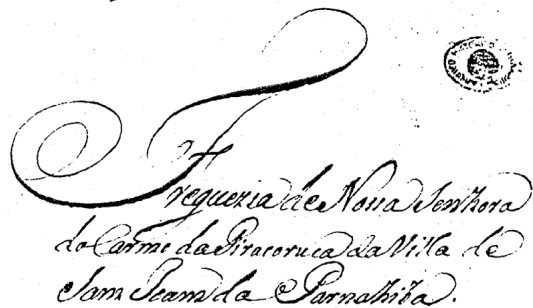 Freguezia de Nossa Senhora
do Carmo da Piracoruca da Villa de
Sam Joam da Parnahiba.